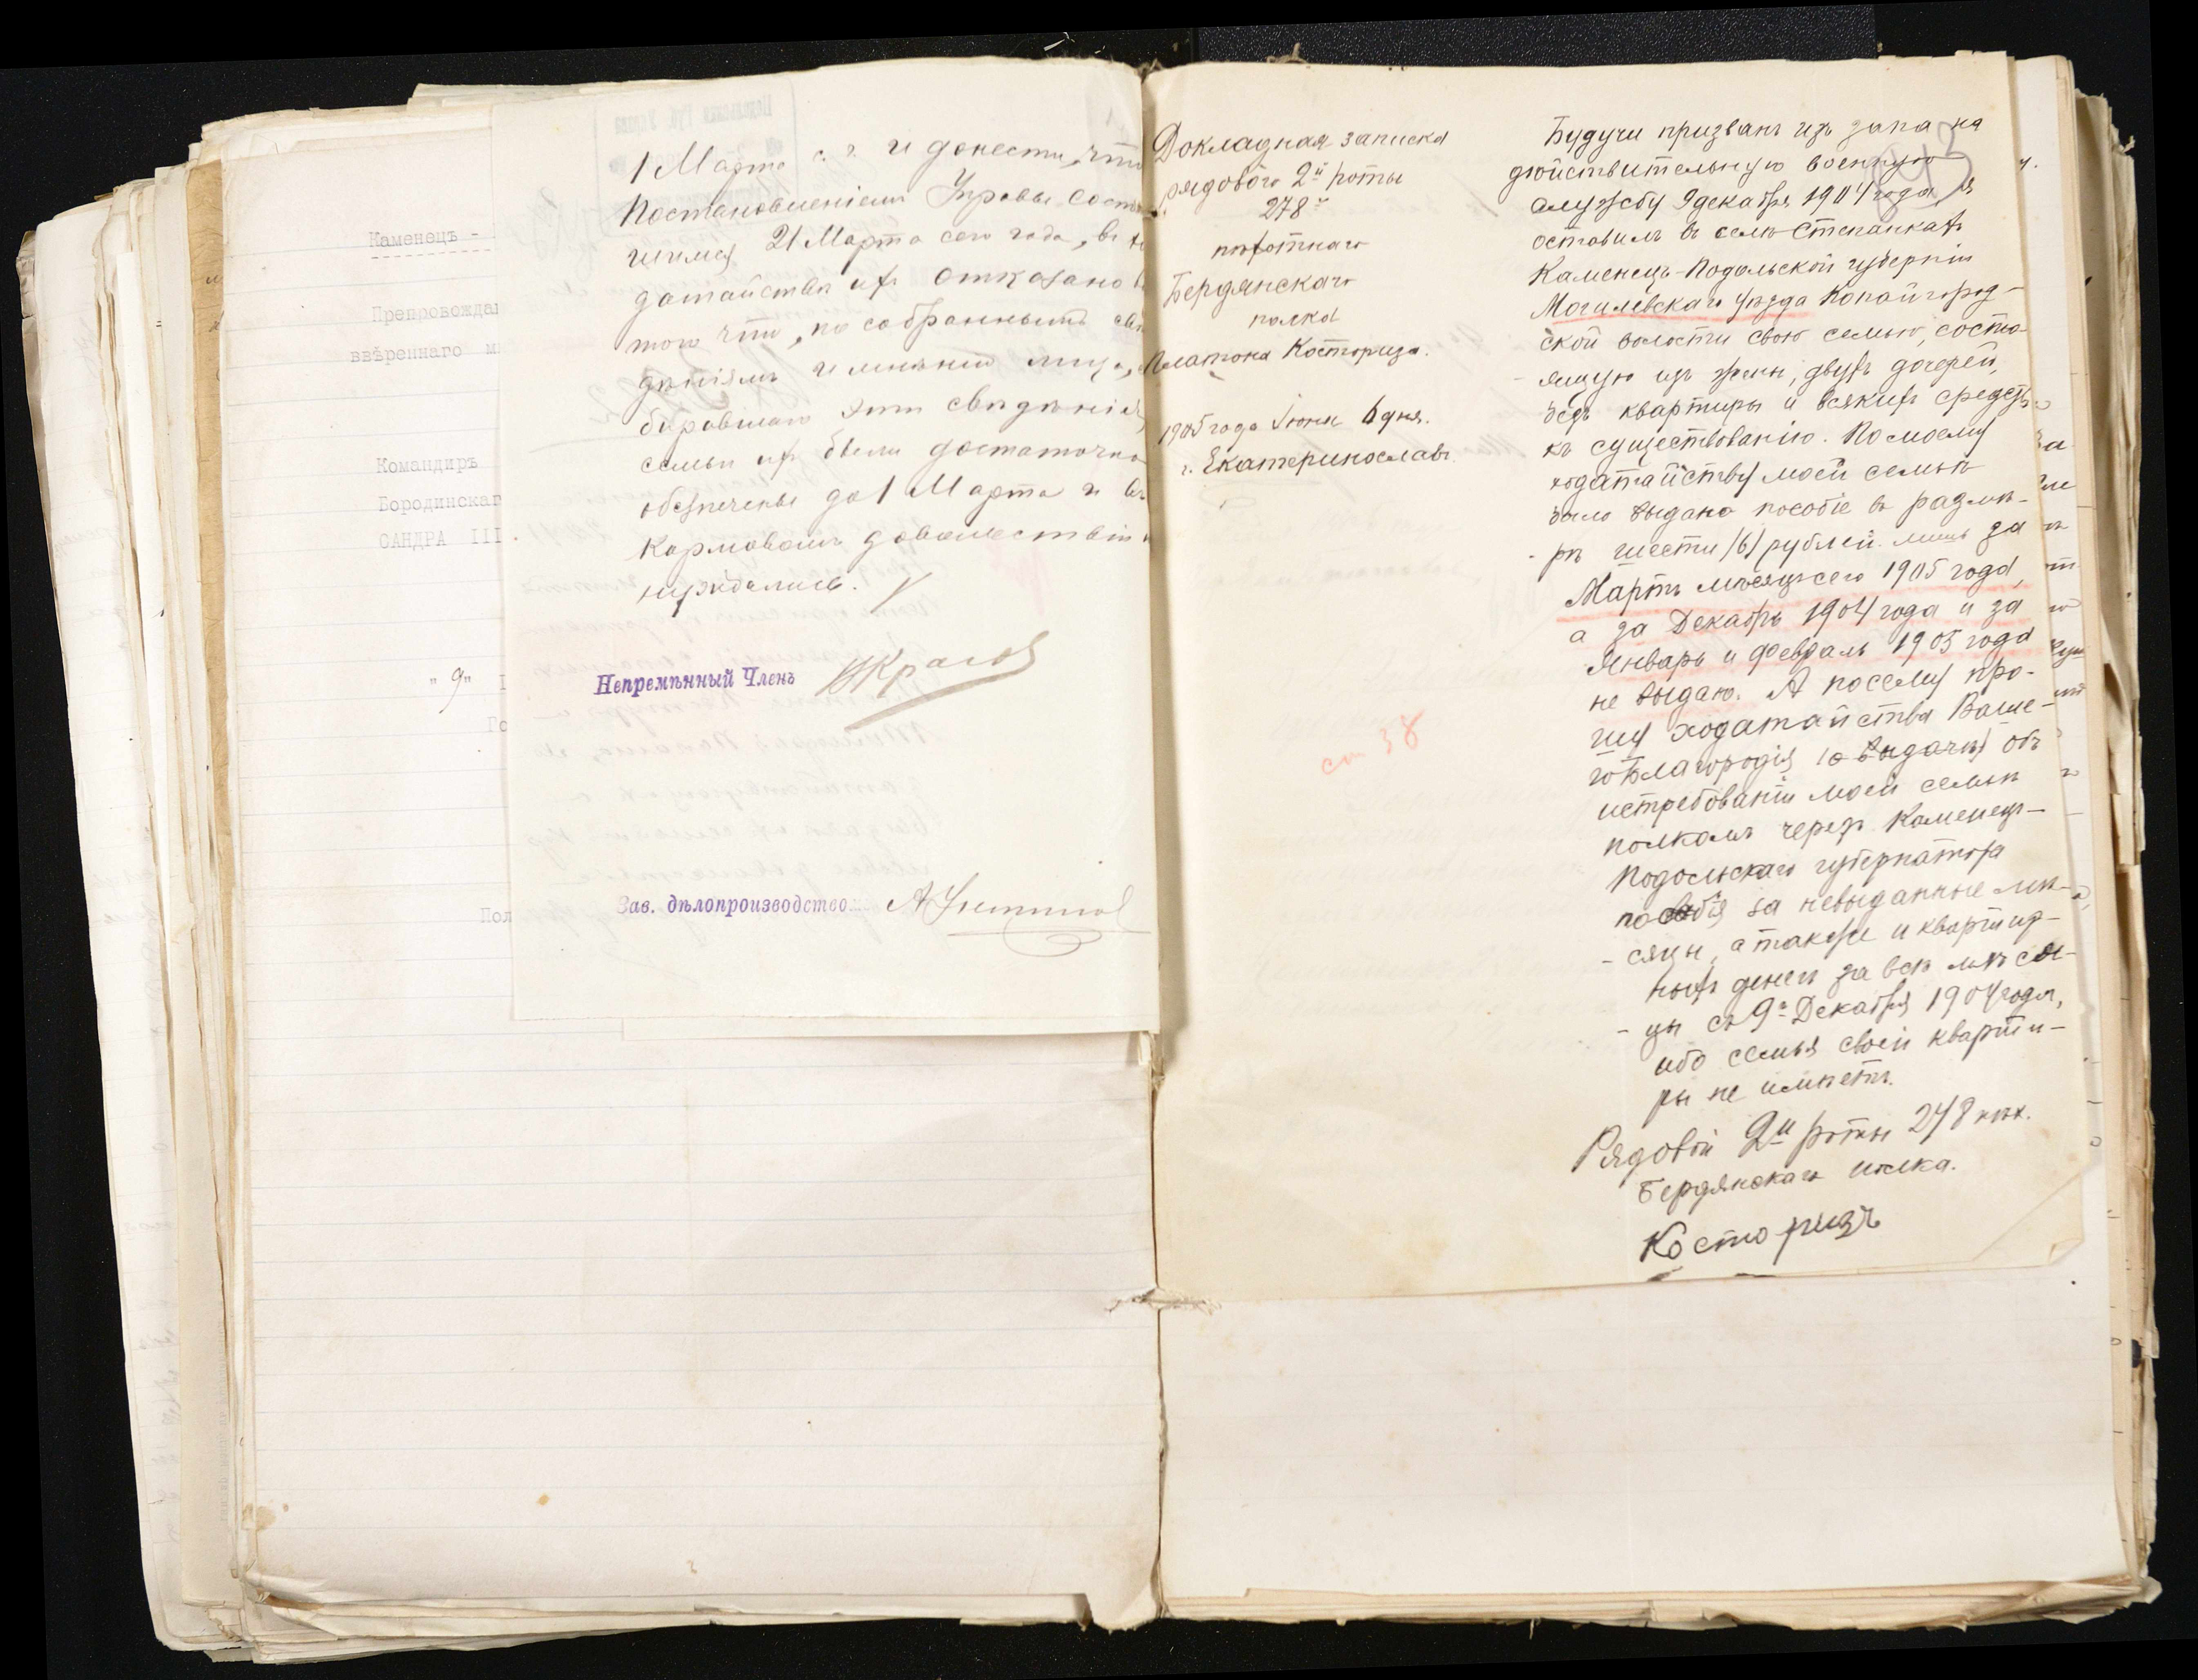 Каменецъ -
Препровождая
ввѣреннаго м
Командиръ
Бородинскаг
САНДРА III
"9"
Пол
1 Марта с. г. и донести, что
постановленіемъ Управы, состо
шимся 21 Марта сего года, въ
датайствѣ ихъ отказано
того что, по собраннымъ свѣ
дѣніямъ и мнѣнію лица,
биравшаго эти свѣдѣнія,
семьи ихъ были достаточно
обезпечены до 1 Марта и въ
кормовомъ довольствіи н
нуждались.
Непремѣнный Членъ
Зав. дѣлопроизводство
Докладная записка
рядового 2й роты
278го
пѣхотнаго
Бердянскаго
полка
Платона Косториза.
1905 года Іюня 6 дня.
г. Екатеринославъ
Будучи призванъ изъ запа на
дѣйствительную военную
службу 9 декабря 1904 года, я
оставилъ въ селѣ Степанкахъ
Каменецъ-Подольской губерніи
Могилевскаго уѣзда Копайгород-
ской волости свою семью, состо-
ящую изъ жены, двухъ дочерей,
безъ квартиры и всякихъ средствъ
къ существованію. По моему
ходатайству моей семьѣ
было выдано пособіе въ размѣ-
-рѣ шести /6/ рублей лишь за
Мартъ мѣсяцъ сего 1905 года,
а за Декабрь 1904 года и за
Январь и февраль 1905 года
не выдано. А посему про-
шу ходатайства Ваше-
го Благородія (о выдачѣ) объ
истребованіи моей семьѣ
полкомъ черезъ Каменецъ-
Подольскаго губернатора
пособія за невыданные мѣ-
-сяцы, а также и квартир-
ныхъ денегъ за всѣ мѣся-
-цы съ 9го Декабря 1904 года,
ибо семья своей кварти-
ры не имѣетъ.
Рядовой 2й роты 278 пѣх.
Бердянскаго полка.
Косторизъ
ст 38